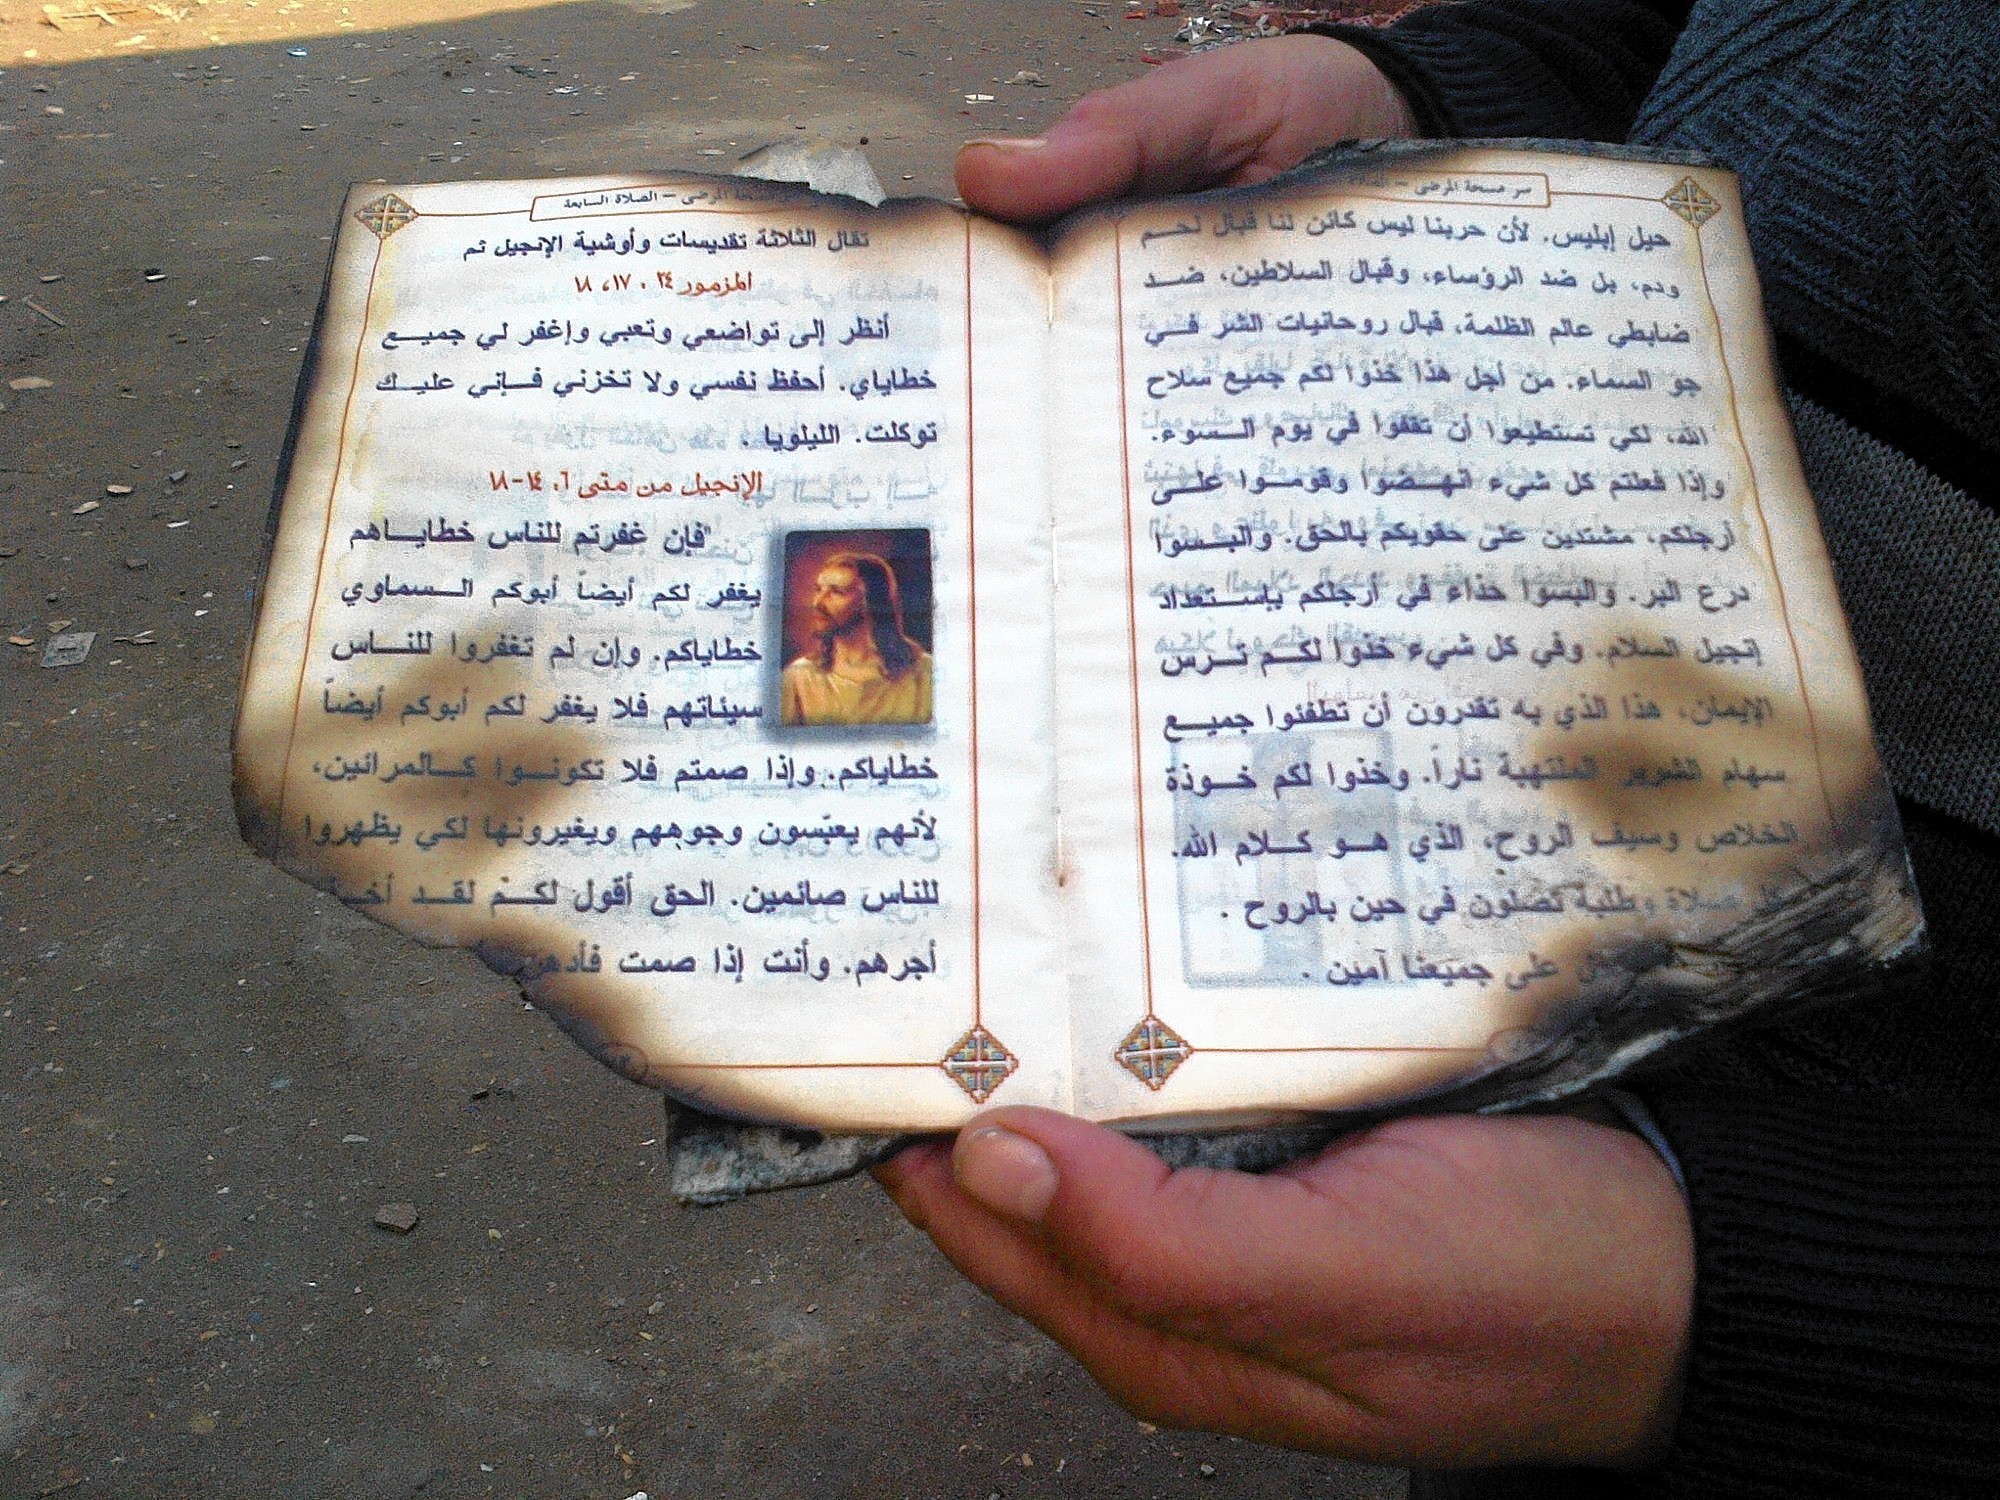 سر مسحة المرضى –
حيل إبليس. لأن حربنا ليس كائن لنا قبال لحـــم
ودم، بل ضد الرؤساء، وقبال السلاطين، ضــد
ضابطي عالم الظلمة، قبال روحانيات الشر فـــي
جو السماء. من أجل هذا خذوا لكم جميع سلاح
الله، لكي تستطيعوا أن تقفوا في يوم الــسوء.
وإذا فعلتم كل شيء انهــضوا وقومــوا علــى
أرجلكم، مشتدين على حقويكم بالحق. والبــسوا
درع البر. والبسوا حذاء في أرجلكم بإســتعداد
إنجيل السلام. وفي كل شيء خذوا لكــم تــرس
الإيمان، هذا الذي به تقدرون أن تطفئوا جميــع
سهام الشرير الملتهبة ناراً. وخذوا لكم خــوذة
الخلاص وسيف الروح، الذي هــو كــلام الله.
صلاة وطلبة تصلون في حين بالروح .
على جميعنا آمين .
المرضى – الصلاة السابعة
تقال الثلاثة تقديسات وأوشية الإنجيل ثم
المزمور ٢٤ ، ١٧، ١٨
أنظر إلى تواضعي وتعبي وإغفر لي جميـــع
خطاياي. أحفظ نفسي ولا تخزني فــإني عليــك
توكلت. الليلويا .
الإنجيل من متى ٦، ١٤-١٨
"فإن غفرتم للناس خطايــاهم
يغفر لكم أيضاً أبوكم الــسماوي
خطاياكم. وإن لم تغفروا للنــاس
سيئاتهم فلا يغفر لكم أبوكم أيضاً
خطاياكم. وإذا صمتم فلا تكونــوا كــالمرائين،
لأنهم يعبّسون وجوههم ويغيرونها لكي يظهروا
للناس صائمين. الحق أقول لكــم لقــد
أجرهم. وأنت إذا صمت